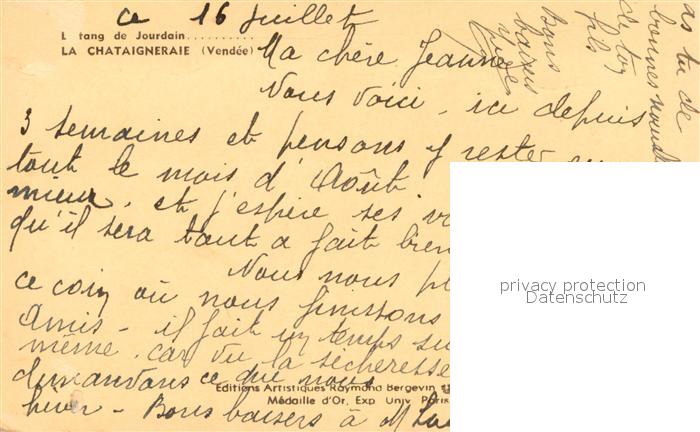 ce 16 Juillet
L'Etang de Jourdain..........
LA CHATAIGNERAIE (Vendée)
Ma chère Jeanne
Nous voici, ici depuis
3 semaines et pensons y rester
tout le mois d'Août
mieux, et j'espère
qu'il sera tout a fait bien
Nous nous
ce coin où nous finissons
Amis - il fait un temps
même, car vu la sécheresse
demandons ce que nous
hiver - Bons baisers à M
Editions Artistiques Raymond Bergevin
Médaille d'Or, Exp Univ Paris
as tu de
bonnes
de ton
fils
Bons
baisers
privacy protection
Datenschutz